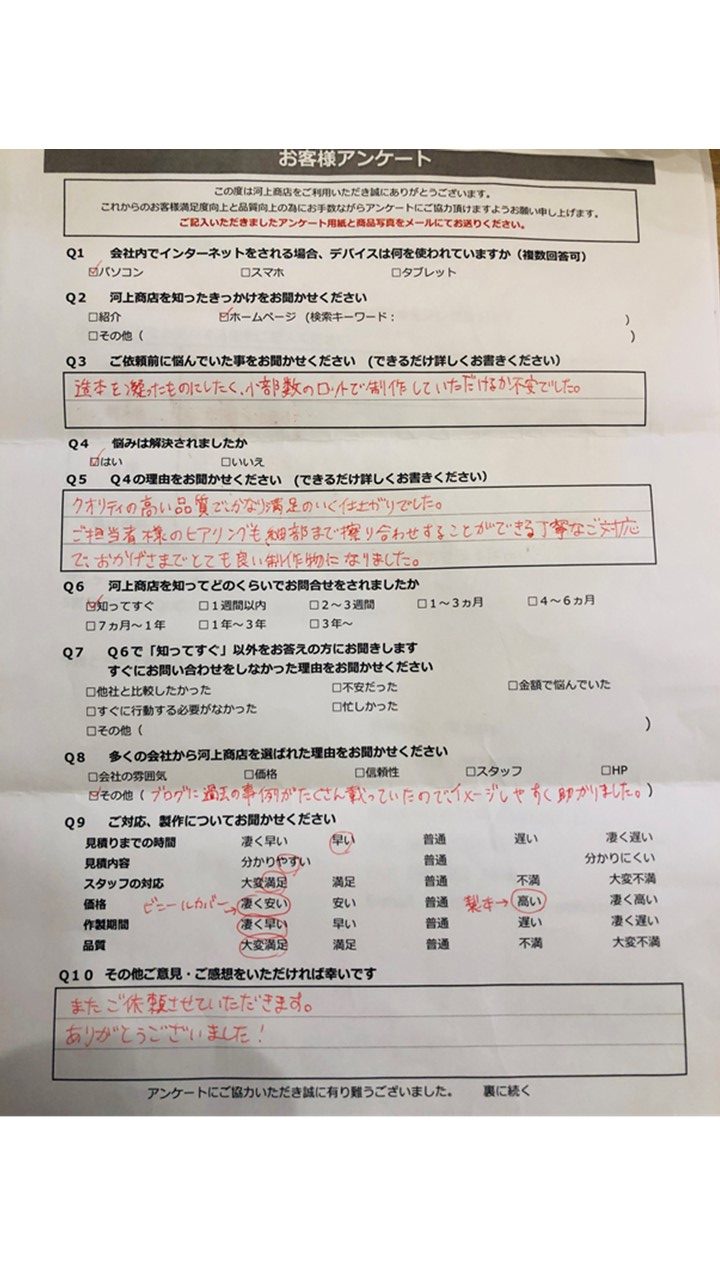 お客様アンケート
この度は河上商店をご利用いただき誠にありがとうございます。
これからのお客様満足度向上と品質向上の為にお手数ながらアンケートにご協力頂けますようお願い申し上げます。
ご記入いただきましたアンケート用紙と商品写真をメールにてお送りください。
Q1 会社内でインターネットをされる場合、デバイスは何を使われていますか（複数回答可）
☑パソコン □スマホ □タブレット
Q2 河上商店を知ったきっかけをお聞かせください
□紹介 ☑ホームページ（検索キーワード： ）
□その他（ ）
Q3 ご依頼前に悩んでいた事をお聞かせください （できるだけ詳しくお書きください）
造本を凝ったものにしたく、小部数のロットで制作していただけるか不安でした。
Q4 悩みは解決されましたか
☑はい □いいえ
Q5 Q4の理由をお聞かせください （できるだけ詳しくお書きください）
クオリティの高い品質で、かなり満足のいく仕上がりでした。
ご担当者様のヒアリングも細部まで擦り合わせすることができる丁寧なご対応
で、おかげさまでとても良い制作物になりました。
Q6 河上商店を知ってどのくらいでお問合せをされましたか
☑知ってすぐ □1週間以内 □2～3週間 □1～3ヵ月 □4～6ヵ月
□7ヵ月～1年 □1年～3年 □3年～
Q7 Q6で「知ってすぐ」以外をお答えの方にお聞きします
すぐにお問い合わせをしなかった理由をお聞かせください
□他社と比較したかった □不安だった □金額で悩んでいた
□すぐに行動する必要がなかった □忙しかった
□その他（ ）
Q8 多くの会社から河上商店を選ばれた理由をお聞かせください
□会社の雰囲気 □価格 □信頼性 □スタッフ □HP
☑その他（ブログに過去の事例がたくさん載っていたので、イメージしやすく助かりました。）
Q9 ご対応、製作についてお聞かせください
見積りまでの時間 凄く早い 早い 普通 遅い 凄く遅い
見積内容 分かりやすい 普通 分かりにくい
スタッフの対応 大変満足 満足 普通 不満 大変不満
価格 ビニールカバー→ 凄く安い 安い 普通 製本→ 高い 凄く高い
作製期間 凄く早い 早い 普通 遅い 凄く遅い
品質 大変満足 満足 普通 不満 大変不満
Q10 その他ご意見・ご感想をいただければ幸いです
またご依頼させていただきます。
ありがとうございました！
アンケートにご協力いただき誠に有り難うございました。 裏に続く